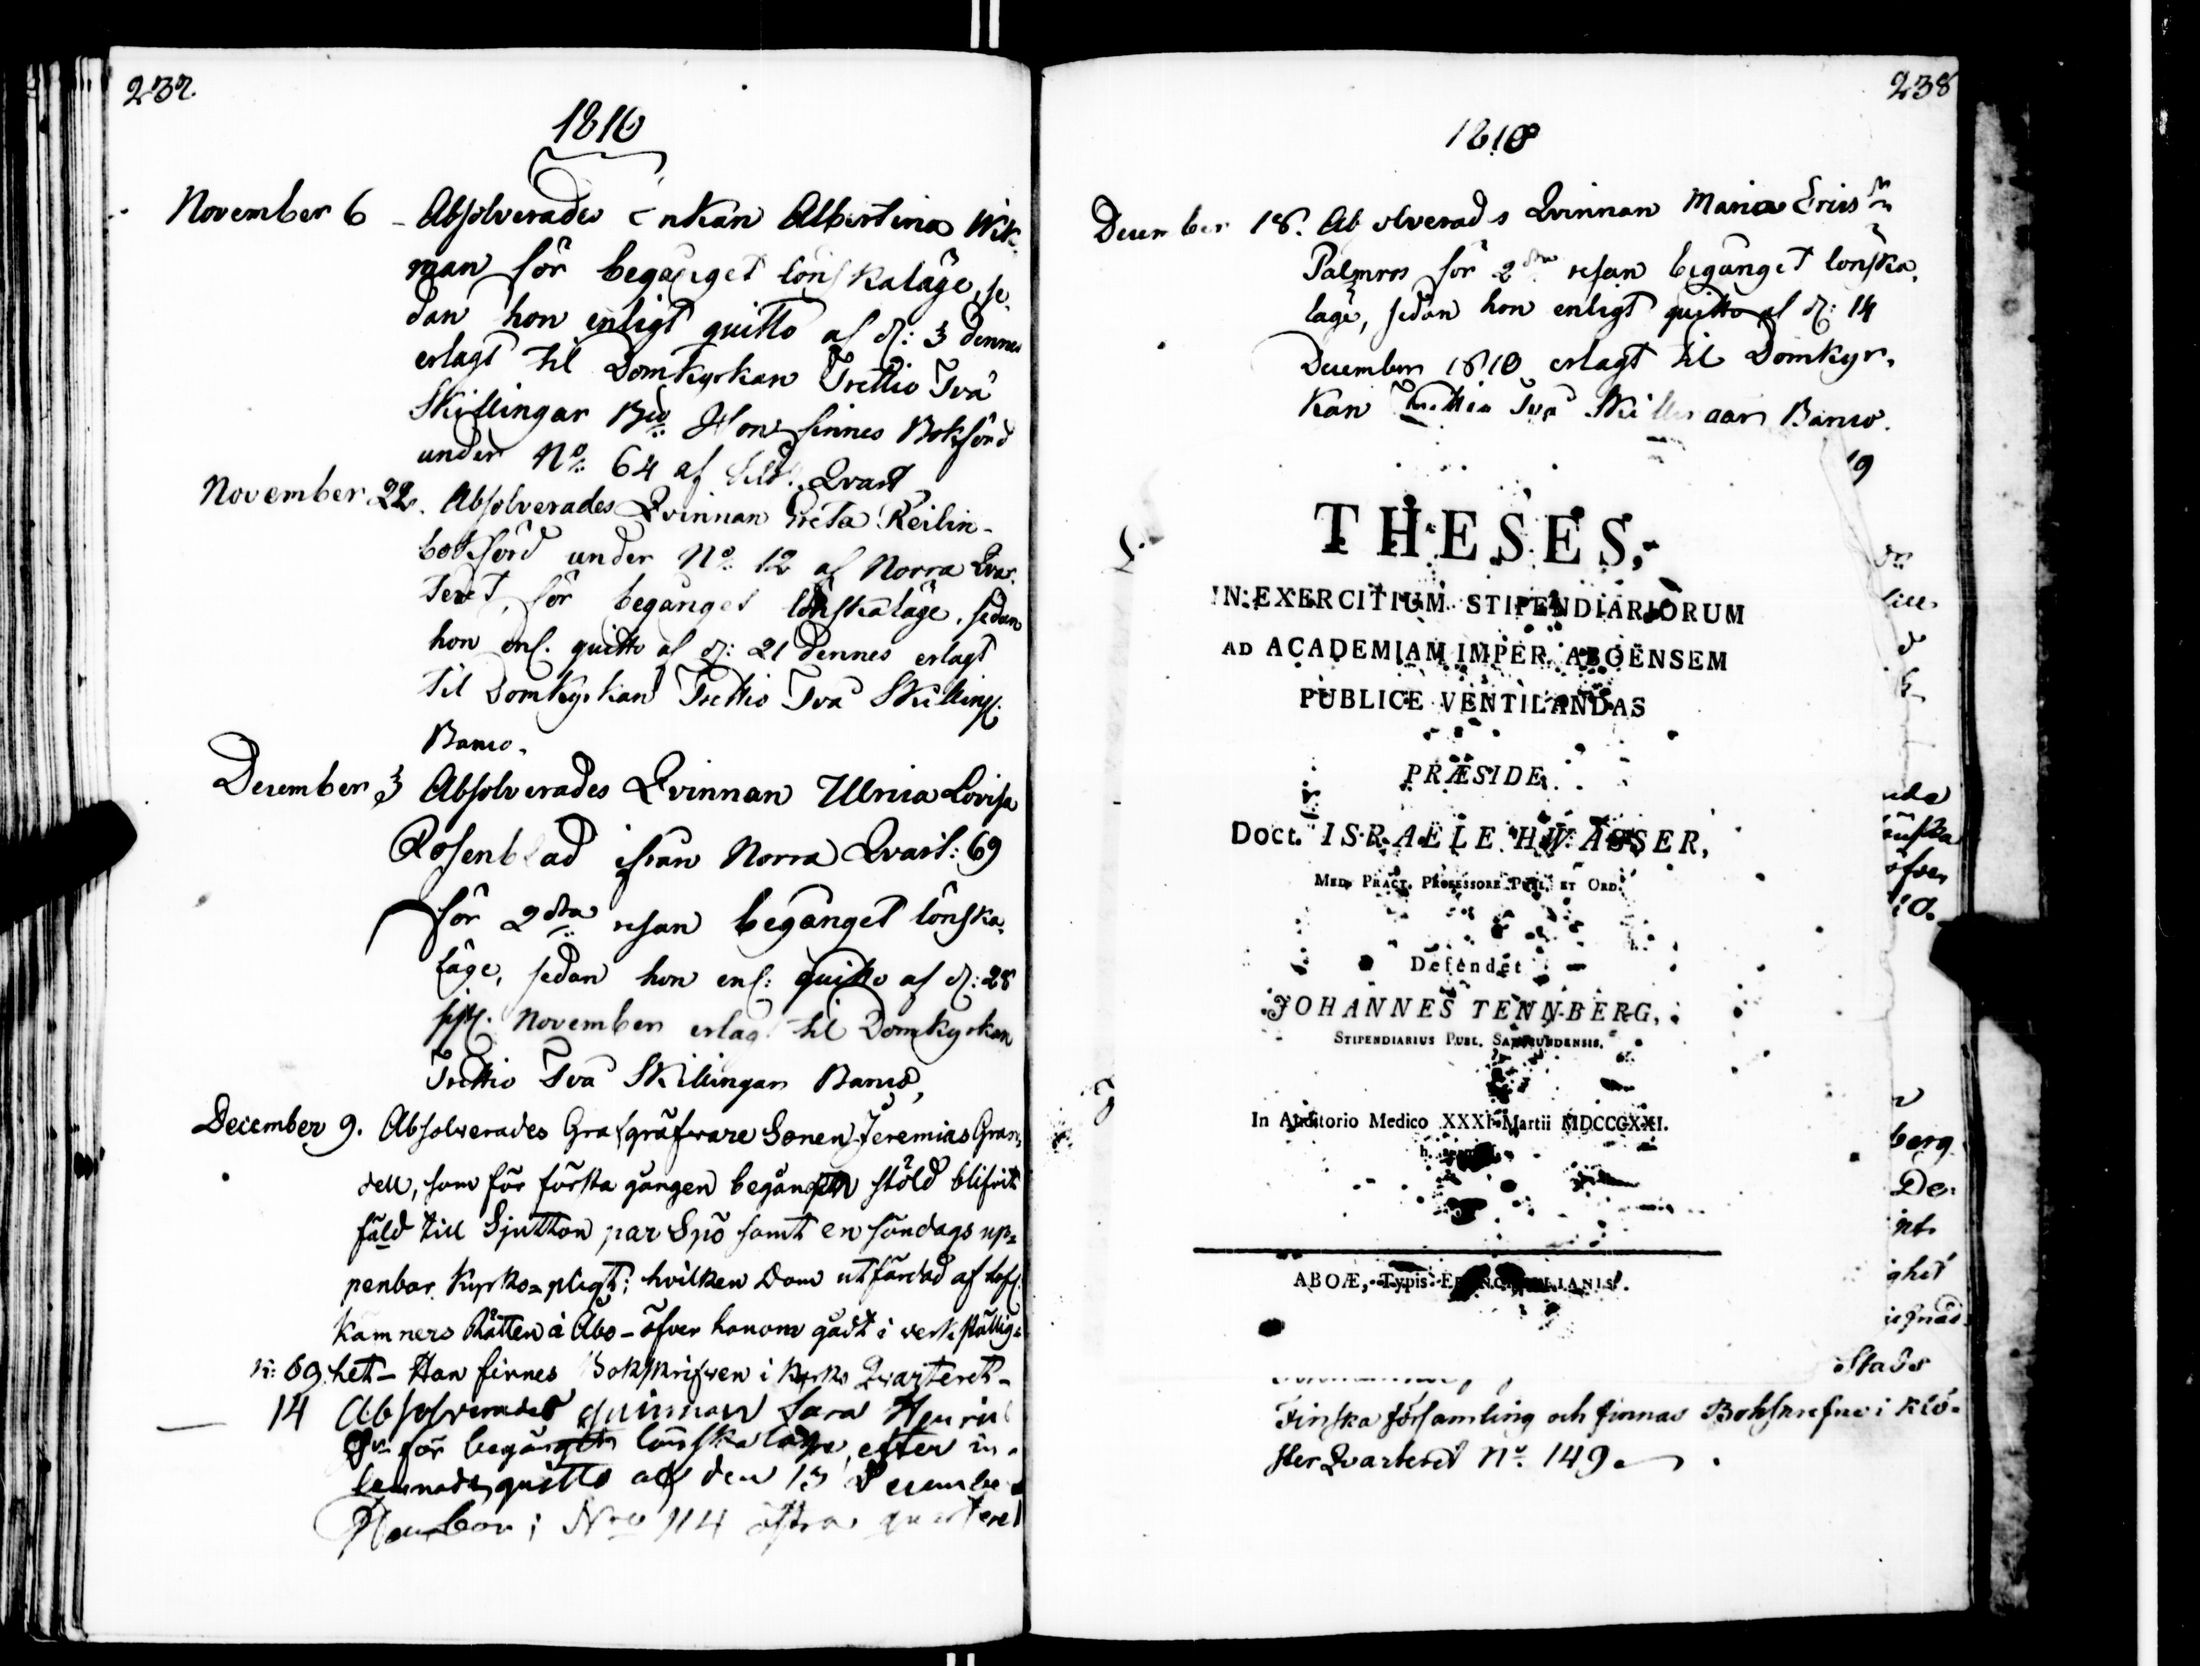 237.
1818
November 6 - Absolverades Enkan Albertina Wik-
man för begånget lönskaläge, se-
dan hon enligt quitto af d: 3 dennes
erlagt til Domkyrkan Trettio Två
Skillingar Bco Hon finnes Bokförd
under No 64 af Qvart
November 22. Absolverades Qvinnan Greta Keilin-
bokförd under No 12 af Norra Qvar-
teret, för begånget lönskaläge, sedan
hon enl. quitto af d: 21 dennes erlagt
til Domkyrkan Trettio Två Skilling
Banco.
December 3 Absolverades Qvinnan Ulrica Lovisa
Rosenblad ifrån Norra Qvart: 69
för 2dra resan begånget lönska-
läge, sedan hon enl: quitto af d: 28
sistl. November erlagt til Domkyrkan
Trettio Två Skillingar Banco,
December 9. Absolverades Grafgräfware Sonen Jeremias Gran-
dell, som för första gången begången stöld blifvit
fäld till Sjutton par Spö samt en söndags up-
penbar Kyrko-pligt; hvilken Dom utfärdad af Lofl.
Kämners Rätten i Åbo - öfver honom gådt i verkställig-
n: 69. het - Han finnes Bokskrifven i Kyrko Qvarteret -
14 Absolverades qvinnan Sara Henrics
Dr för begånget lönskaläge, efter in-
lemnadt quitto af den 13 December
No 114 östra quarteret
238
1818
December 18. Absolverades Qvinnan Maria Ericsdr
Palmros för 2dra resan begånget lönska-
läge, sedan hon enligt quitto af d: 14
December 1818 erlagt til Domkyr-
kan Trettio Två Skillingar Banco.
19
THESES,
IN EXERCITIUM STIPENDIARIORUM
AD ACADEMIAM IMPER. ABOËNSEM
PUBLICE VENTILANDAS
PRÆSIDE
Doct. ISRAELE HWASSER,
MED. PRACT. PROFESSORE PUBL. ET ORD.
Defendet
JOHANNES TENNBERG,
STIPENDIARIUS PUBL. SATACUNDENSIS.
In Auditorio Medico XXXI Martii MDCCCXXI.
ABOÆ, Typis FRENCKELLIANIS.
berg
De
ghet
Stads
Finska församling och finnas Bokskrefne i Klö-
ster Qvarteret No 149.